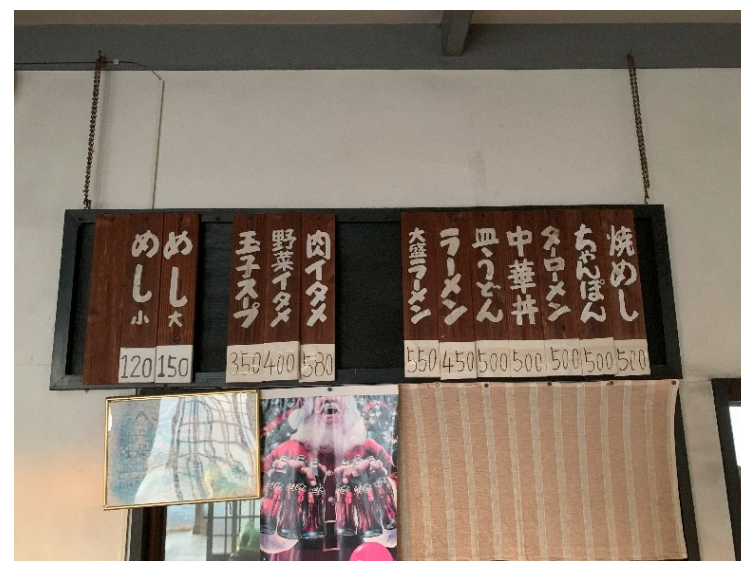 焼めし 500
ちゃんぽん 500
ターローメン 500
中華丼 500
皿うどん 500
ラーメン 450
大盛ラーメン 550
肉イタメ 580
野菜イタメ 400
玉子スープ 350
めし大 150
めし小 120